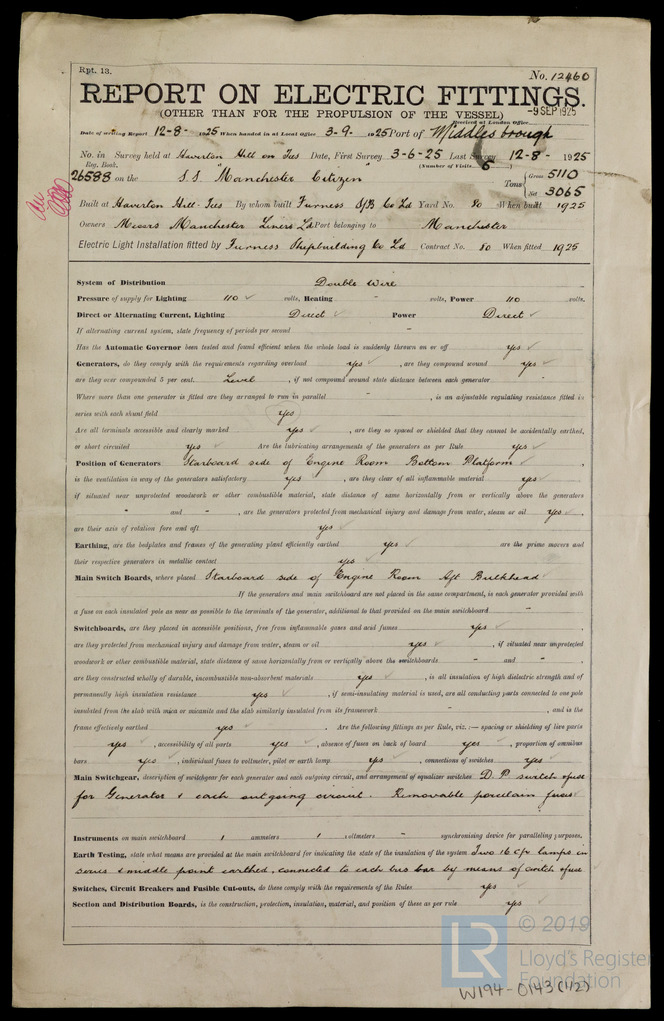 Rpt. 13.
No. 12460
REPORT ON ELECTRIC FITTINGS.
(OTHER THAN FOR THE PROPULSION OF THE VESSEL)
Received at London Office -9 SEP 1925
Date of writing Report 12-8- 1925 When handed in at Local Office 3-9. 1925 Port of Middlesbrough
No. in Survey held at Haverton Hill on Tees Date, First Survey 3-6-25 Last Survey 12-8- 1925
Reg. Book. (Number of Visits 6)
26588 on the S.S. "Manchester Citizen" Tons { Gross 5110
Net 3065
Built at Haverton Hill-Tees By whom built Furness S/B Co Ld Yard No. 80 When built 1925
Owners Messrs Manchester Liners Ld Port belonging to Manchester
Electric Light Installation fitted by Furness Shipbuilding Co Ld Contract No. 80 When fitted 1925
System of Distribution Double Wire
Pressure of supply for Lighting 110 volts, Heating - volts, Power 110 volts.
Direct or Alternating Current, Lighting Direct Power Direct
If alternating current system, state frequency of periods per second -
Has the Automatic Governor been tested and found efficient when the whole load is suddenly thrown on or off yes
Generators, do they comply with the requirements regarding overload yes, are they compound wound yes
are they over compounded 5 per cent. Level, if not compound wound state distance between each generator -
Where more than one generator is fitted are they arranged to run in parallel -, is an adjustable regulating resistance fitted in
series with each shunt field yes
Are all terminals accessible and clearly marked yes, are they so spaced or shielded that they cannot be accidentally earthed,
or short circuited yes Are the lubricating arrangements of the generators as per Rule yes
Position of Generators Starboard side of Engine Room Bottom Platform
is the ventilation in way of the generators satisfactory yes, are they clear of all inflammable material yes
if situated near unprotected woodwork or other combustible material, state distance of same horizontally from or vertically above the generators
" and ", are the generators protected from mechanical injury and damage from water, steam or oil yes,
are their axis of rotation fore and aft yes
Earthing, are the bedplates and frames of the generating plant efficiently earthed yes are the prime movers and
their respective generators in metallic contact yes
Main Switch Boards, where placed Starboard side of Engine Room Aft Bulkhead
If the generators and main switchboard are not placed in the same compartment, is each generator provided with
a fuse on each insulated pole as near as possible to the terminals of the generator, additional to that provided on the main switchboard -
Switchboards, are they placed in accessible positions, free from inflammable gases and acid fumes yes,
are they protected from mechanical injury and damage from water, steam or oil yes, if situated near unprotected
woodwork or other combustible material, state distance of same horizontally from or vertically above the switchboards " and ",
are they constructed wholly of durable, incombustible non-absorbent materials yes, is all insulation of high dielectric strength and of
permanently high insulation resistance yes, if semi-insulating material is used, are all conducting parts connected to one pole
insulated from the slab with mica or micanite and the slab similarly insulated from its framework ", and is the
frame effectively earthed yes. Are the following fittings as per Rule, viz.:— spacing or shielding of live parts
yes, accessibility of all parts yes, absence of fuses on back of board yes, proportion of omnibus
bars yes, individual fuses to voltmeter, pilot or earth lamp yes, connections of switches yes
Main Switchgear, description of switchgear for each generator and each outgoing circuit, and arrangement of equalizer switches D.P. switch & fuse
for Generator & each outgoing circuit. Removable porcelain fuses
Instruments on main switchboard 1 ammeters 1 voltmeters - synchronising device for paralleling purposes.
Earth Testing, state what means are provided at the main switchboard for indicating the state of the insulation of the system Two 16 c/p. lamps in
series & middle point earthed, connected to each bus bar by means of switch & fuse
Switches, Circuit Breakers and Fusible Cut-outs, do these comply with the requirements of the Rules yes
Section and Distribution Boards, is the construction, protection, insulation, material, and position of these as per rule yes
LR
© 2019
Lloyd's Register
Foundation
W194-0143 (1/2)